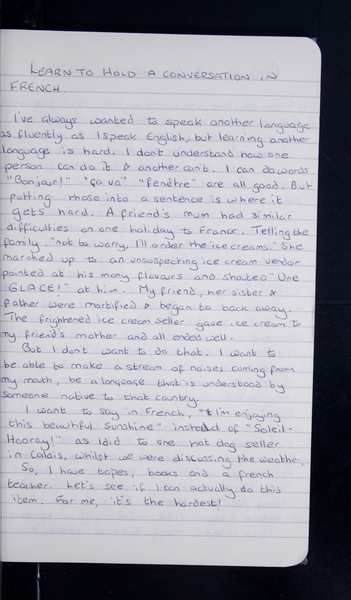 LEARN TO HOLD A CONVERSATION IN
FRENCH.
I've always wanted to speak another language
as fluently as I speak English, but learning another
language is hard. I don't understand how one
person can do it & another can't. I can do words
"Bonjour!" "ça va" "fenêtre" are all good. But
putting those into a sentence is where it
gets hard. A friend's mum had similar
difficulties on one holiday to France. Telling the
family "not to worry, I'll order the ice creams." She
marched up to an unsuspecting ice cream vendor
pointed at his many flavours and shouted "UNE
GLACE!" at him. My friend, her sister &
father were mortified & began to back away.
The frightened ice cream seller gave ice cream to
my friend's mother and all ended well.
But I don't want to do that. I want to
be able to make a stream of noises coming from
my mouth, be a language that is understood by
someone native to that country.
I want to say in French, "I'm enjoying
this beautiful sunshine" instead of "Soleil-
Hooray!" as I did to one hot dog seller
in Calais, whilst we were discussing the weather.
So, I have tapes, books and a french
teacher. Let's see if I can actually do this
item. For me, it's the hardest!